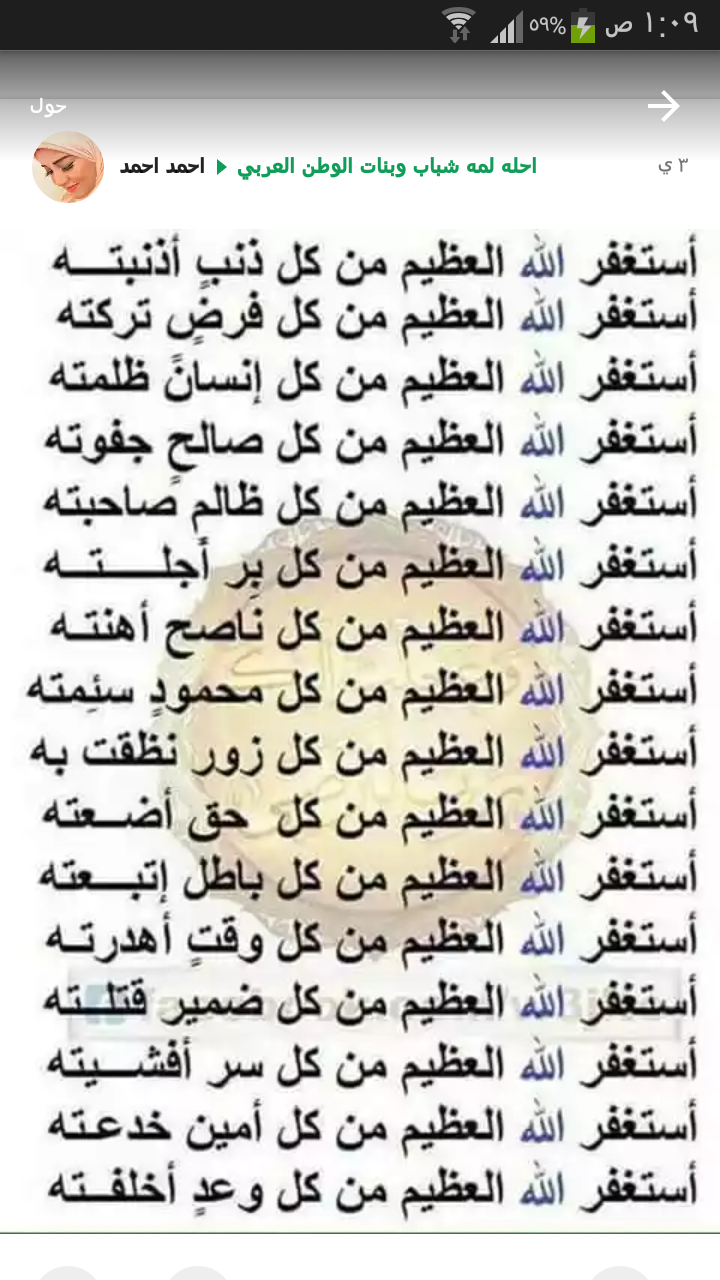 ١:٠٩ ص ٥٩%
حول
احمد احمد ◀ احله لمه شباب وبنات الوطن العربي
٣ ي
أستغفر الله العظيم من كل ذنبٍ أذنبتـــه
أستغفر الله العظيم من كل فرضٍ تركته
أستغفر الله العظيم من كل إنسانً ظلمته
أستغفر الله العظيم من كل صالحٍ جفوته
أستغفر الله العظيم من كل ظالمٍ صاحبته
أستغفر الله العظيم من كل بِر أجلـــتـــه
أستغفر الله العظيم من كل ناصح أهنتــه
أستغفر الله العظيم من كل محمودٍ سئِمته
أستغفر الله العظيم من كل زور نظقت به
أستغفر الله العظيم من كل حق أضــعته
أستغفر الله العظيم من كل باطل إتبــعته
أستغفر الله العظيم من كل وقتٍ أهدرتـه
أستغفر الله العظيم من كل ضمير قتلــته
أستغفر الله العظيم من كل سر أفشــيته
أستغفر الله العظيم من كل أمين خدعـته
أستغفر الله العظيم من كل وعدٍ أخلفــته